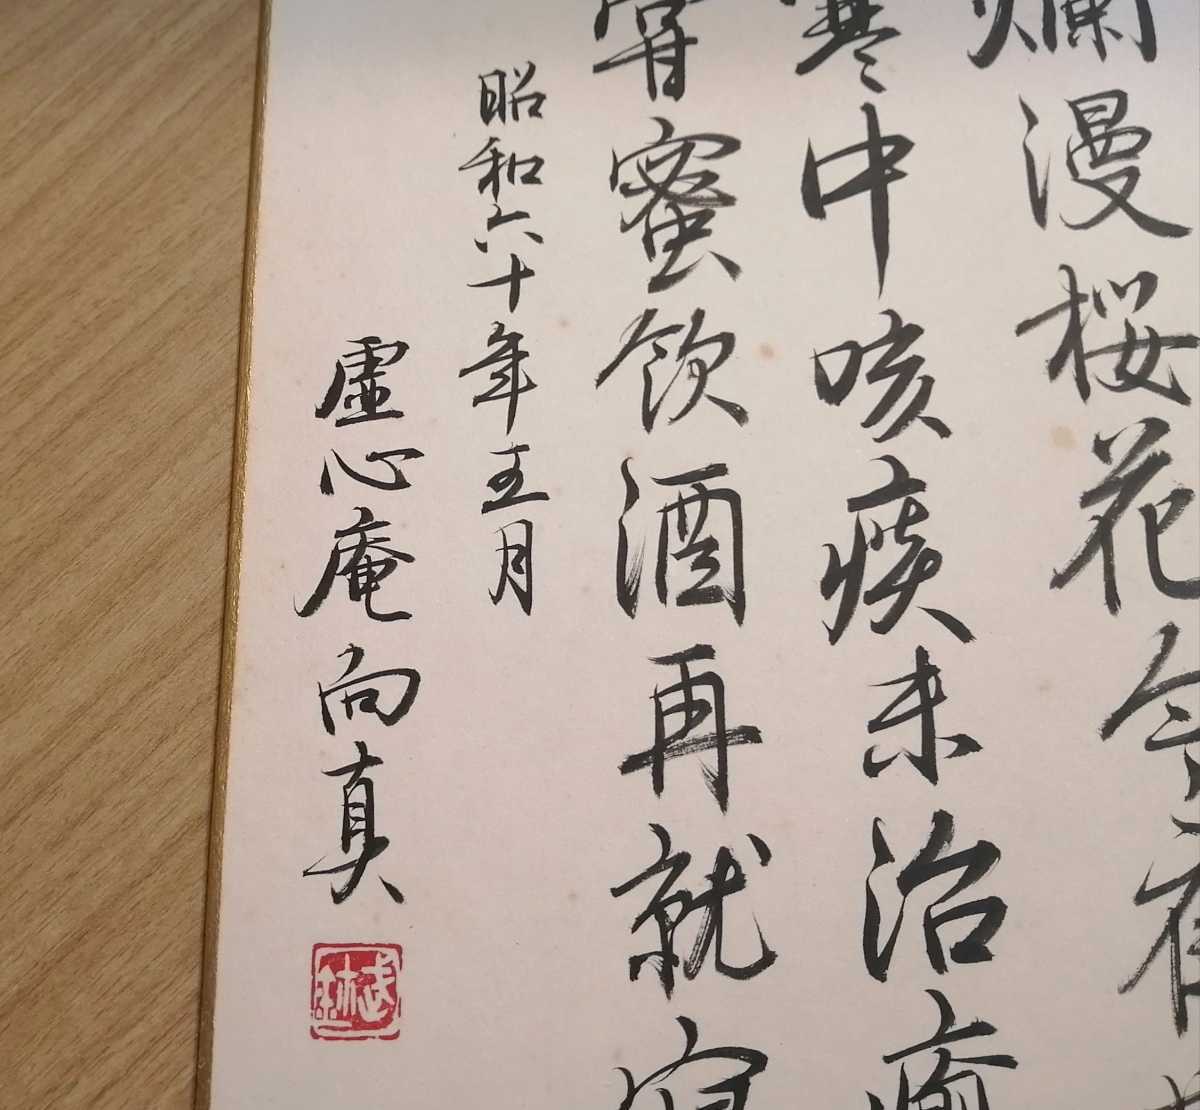 爛漫桜花今夜
寒中咳痰未治癒
嘗蜜飲酒再就寝
昭和六十年五月
虚心庵向真